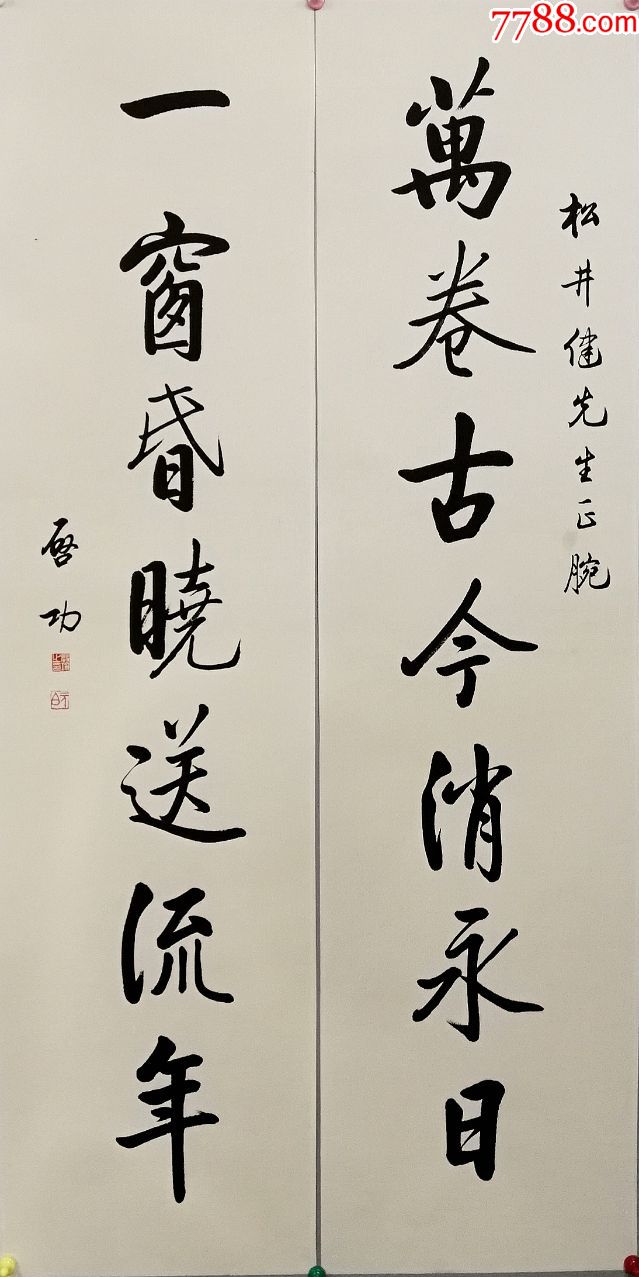 7788.com
松井健先生正腕
萬卷古今消永日
一窗昏曉送流年
啓功